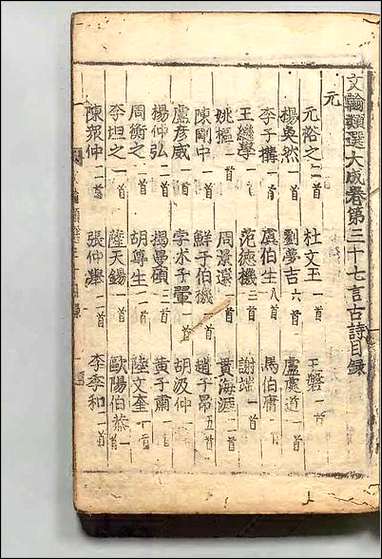 文翰類選大成卷第三十七言古詩目録
元
元裕之二首 杜文玉一首 王磐一首
楊奐然一首 劉夢吉六首 盧處道一首
李子構一首 虞伯生八首 馬伯庸一首
王繼學一首 范德機三首 謝端一首
姚樞一首 周景遠一首 貫海涯一首
陳剛中一首 鮮于伯機一首 趙子昂五首
盧彦威一首 字术子翬一首 胡汲仲一首
楊仲弘二首 揭曼碩三首 黃子肅一首
周衡之一首 胡尊生一首 陸文奎一首
李坦之一首 陸天錫一首 歐陽伯恭一首
陳衆仲一首 張仲舉一首 李季和一首